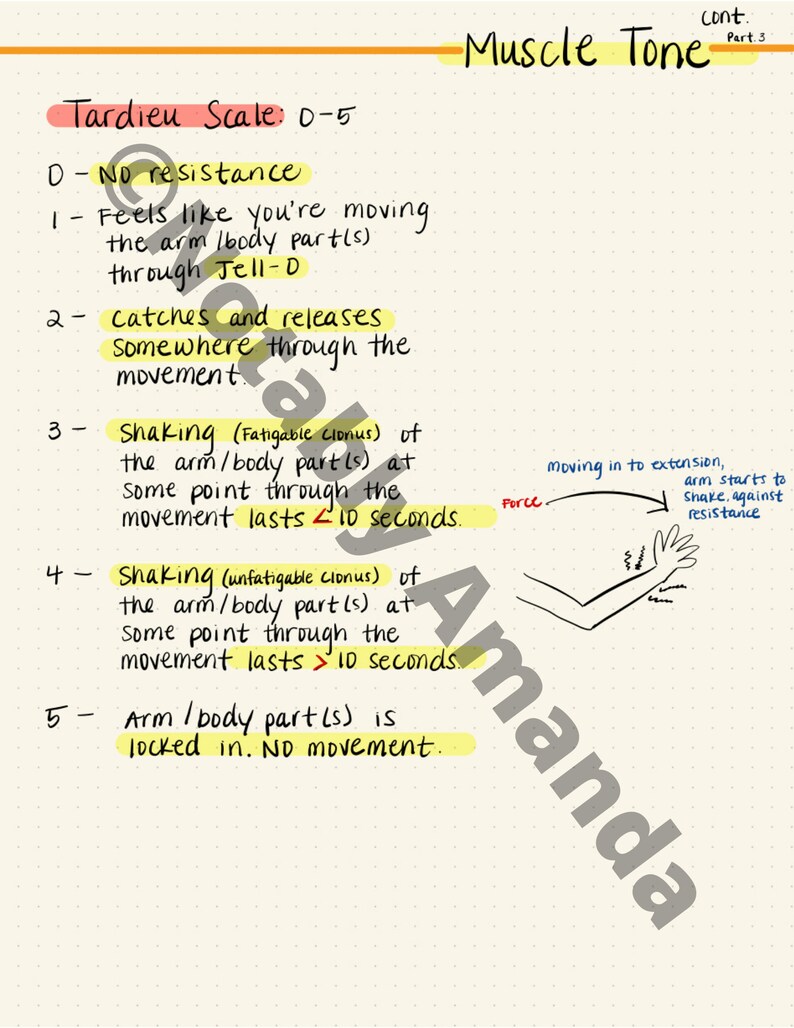 cont.
Part. 3
Muscle Tone
Tardieu Scale: 0-5
0 - No resistance
1 - Feels like you're moving
the arm/body part(s)
through Jell-O
2 - Catches and releases
somewhere through the
movement.
3 - Shaking (Fatigable clonus) of
the arm/body part(s) at
some point through the
movement lasts < 10 seconds.
moving in to extension,
arm starts to
shake, against
resistance
Force
4 - Shaking (unfatigable clonus) of
the arm/body part(s) at
some point through the
movement lasts > 10 seconds.
5 - Arm/body part(s) is
locked in. No movement.
©Notably Amanda